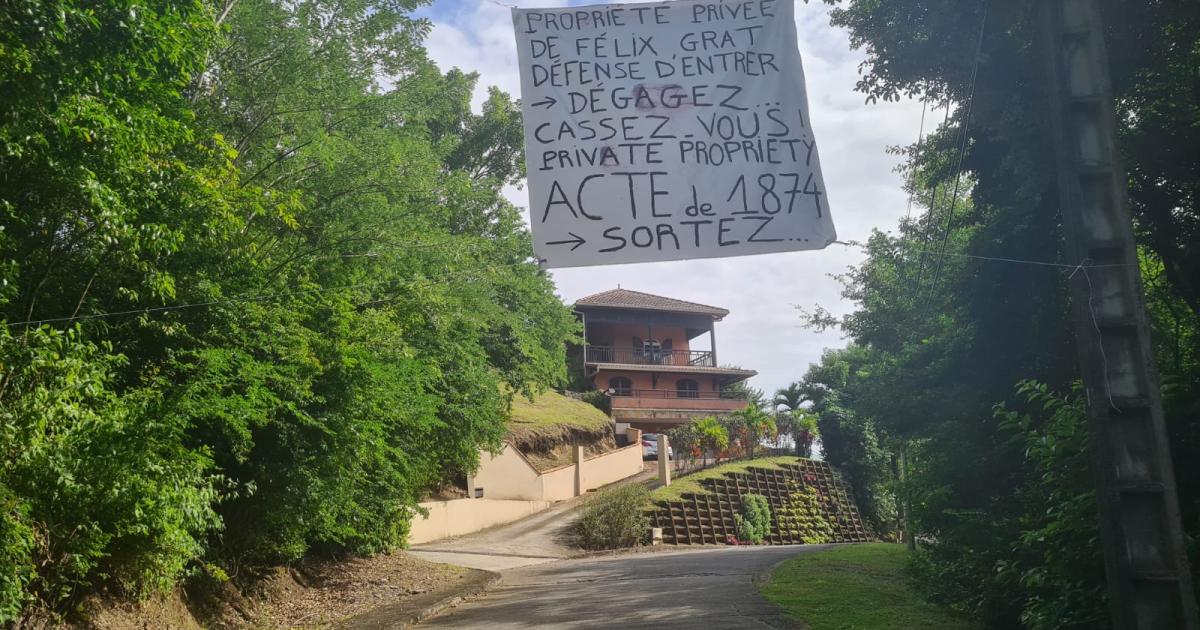 PROPRIÉTÉ PRIVÉE
DE FÉLIX GRAT
DÉFENSE D'ENTRER
→ DÉGAGEZ...
CASSEZ-VOUS!
PRIVATE PROPRIETY
ACTE de 1874
→ SORTEZ...